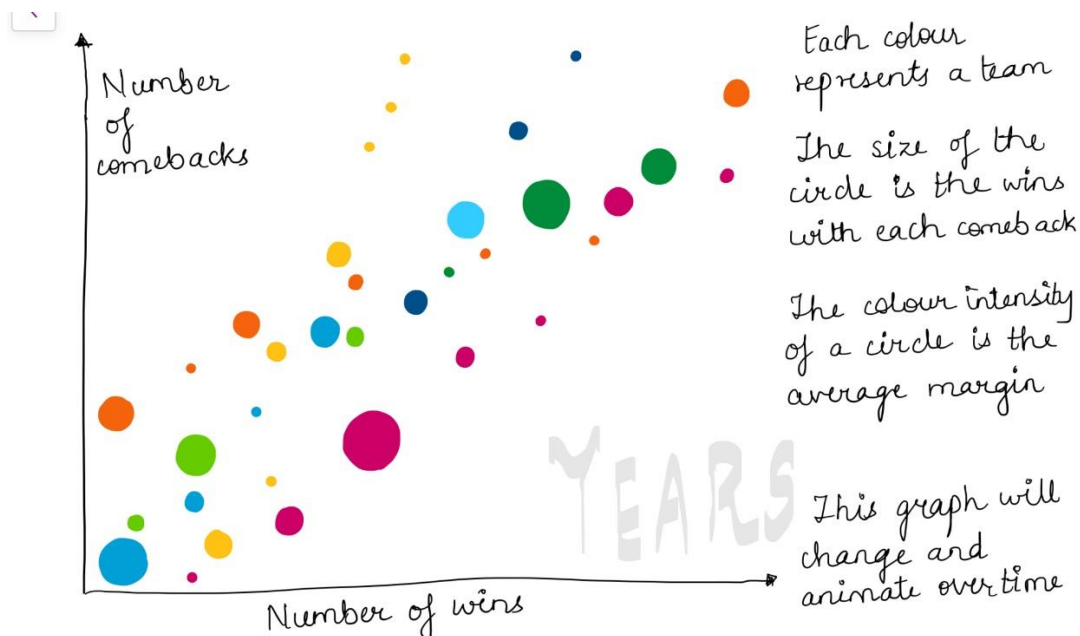 Number
of
comebacks
Number of wins
YEARS
Each colour
represents a team
The size of the
circle is the wins
with each comeback
The colour intensity
of a circle is the
average margin
This graph will
change and
animate over time